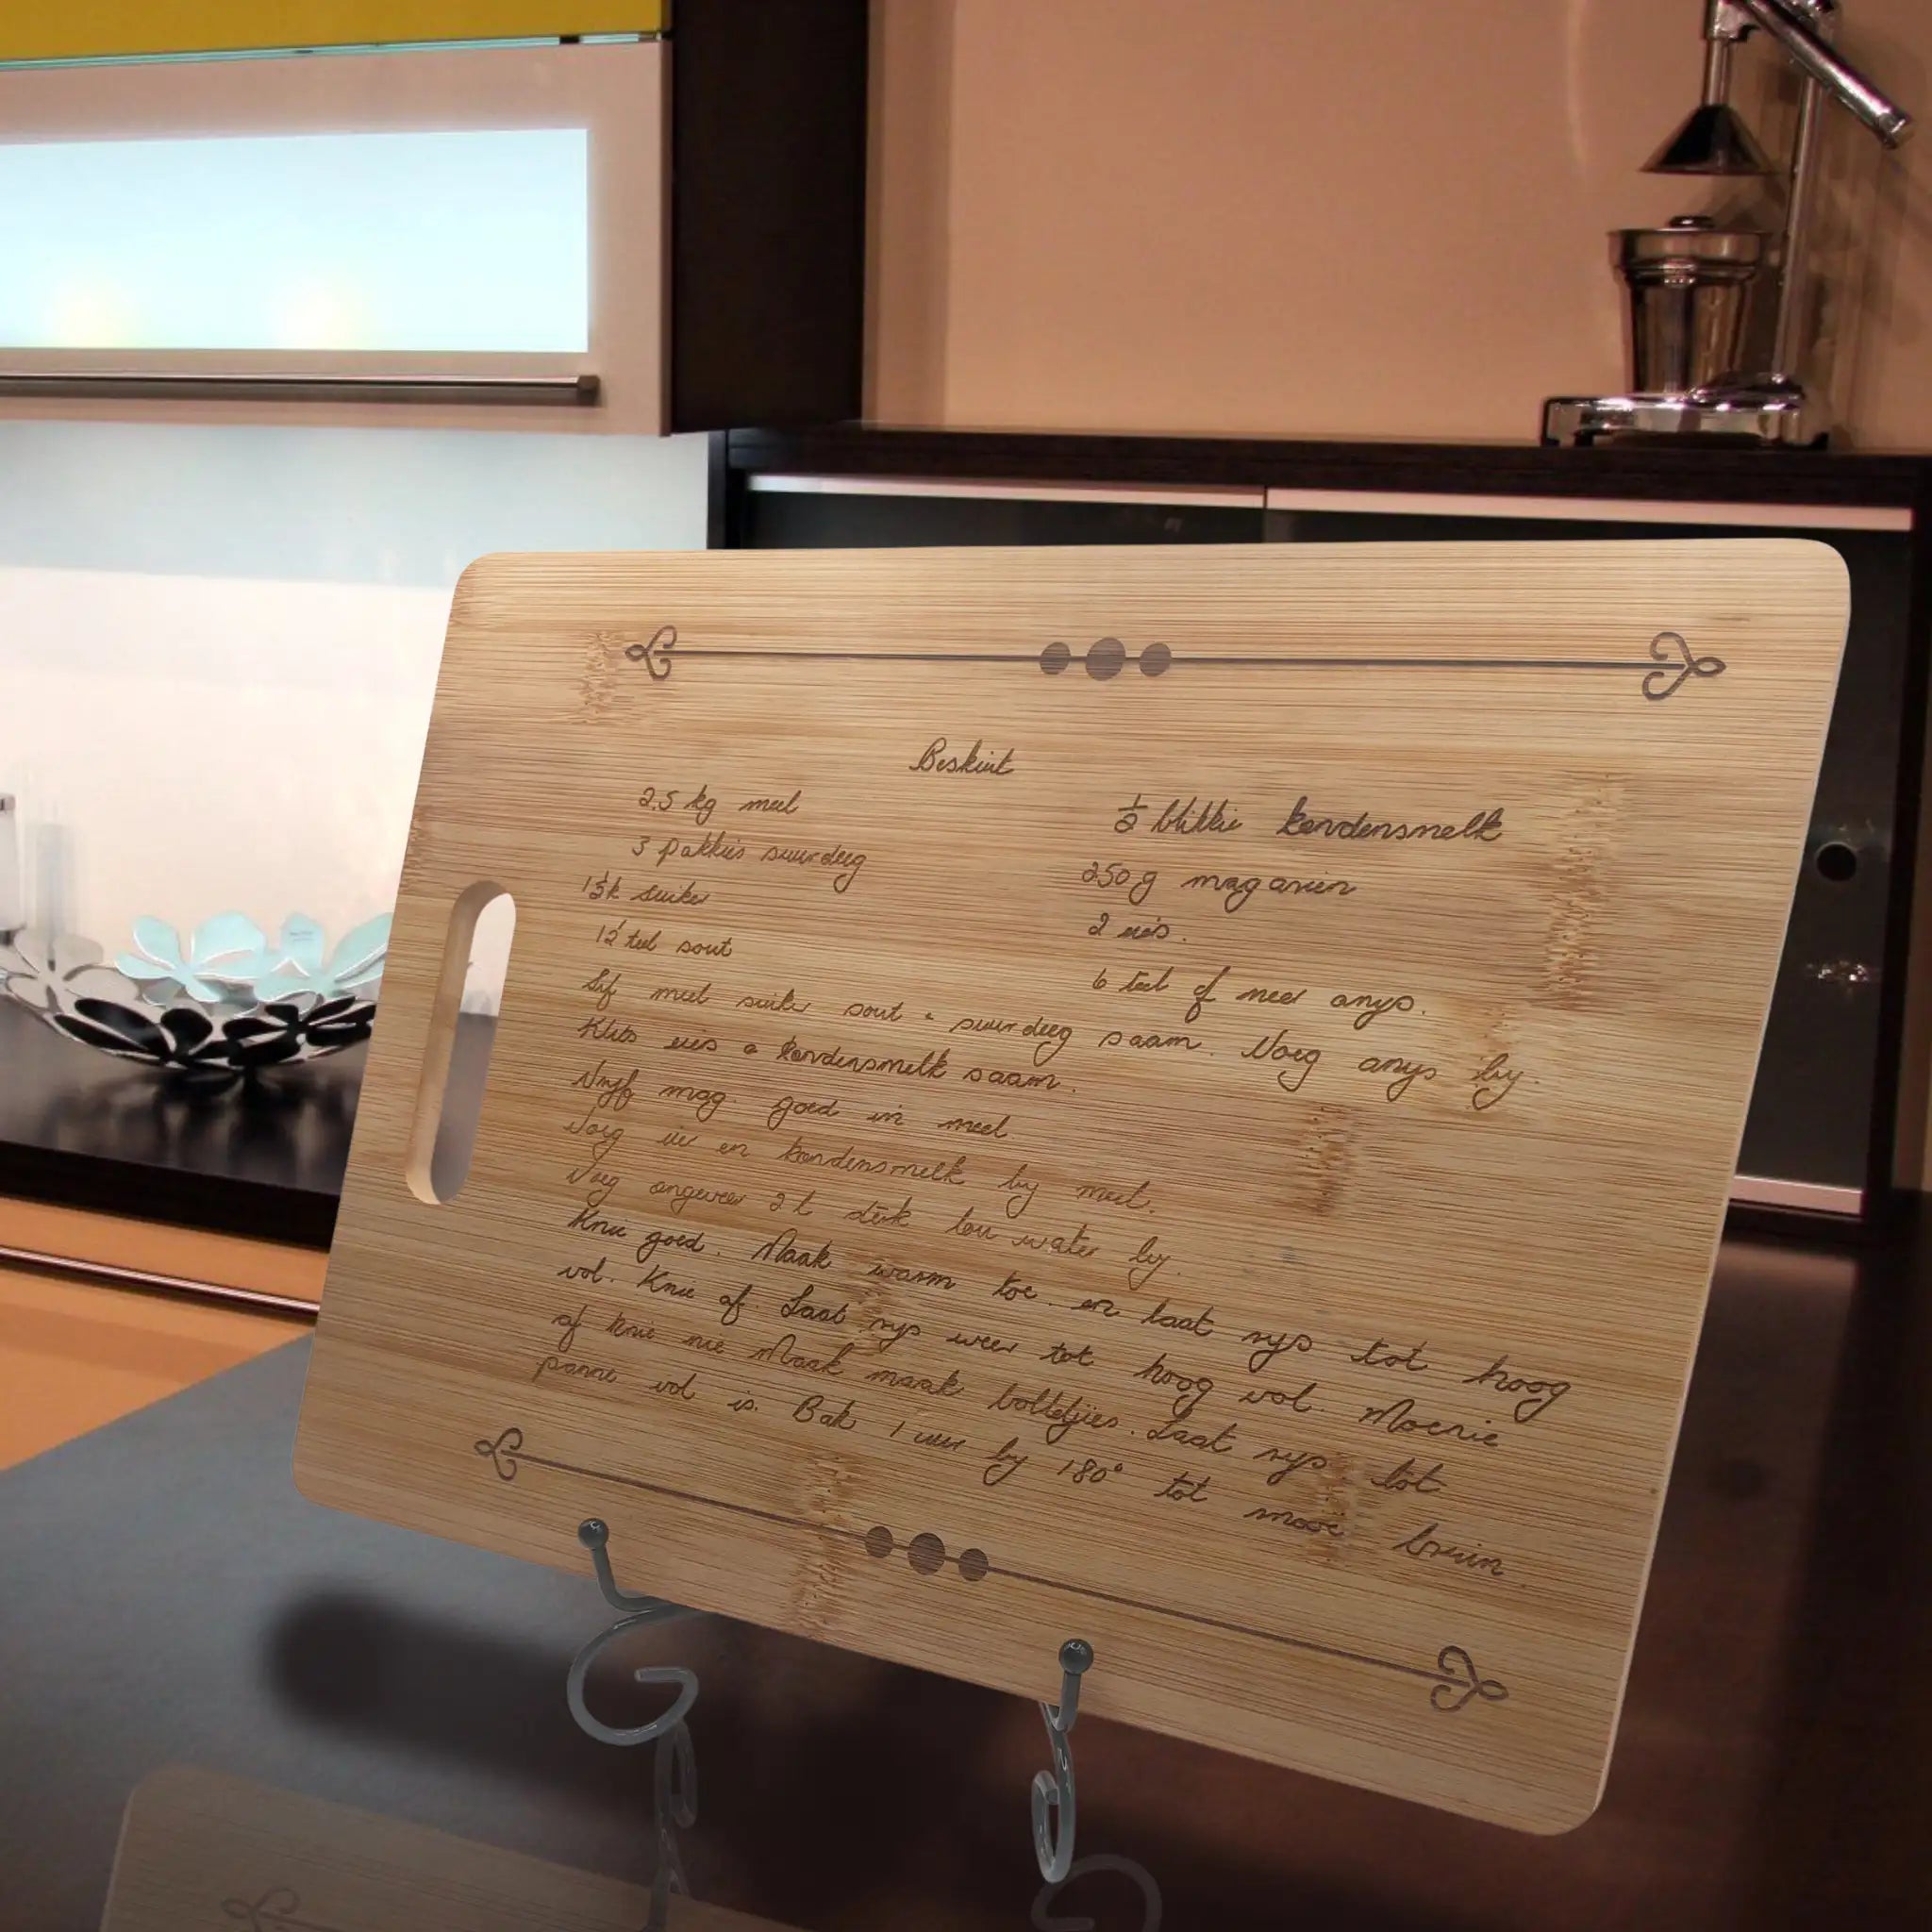 Beskuit
2.5 kg meel
3 pakkies suurdeeg
1½k suiker
1½ teel sout
½ blikkie kondensmelk
250g magarien
2 eiers.
6 teel of meer anys.
Sif meel suiker sout + suurdeeg saam. Voeg anys by.
Klits eiers + kondensmelk saam.
Vryf mag. goed in meel
Voeg eier en kondensmelk by meel.
Voeg ongeveer 2 l sterk lou water by.
Knie goed. Maak warm toe. en laat rys tot hoog
vol. Knie af. Laat rys weer tot hoog vol. Moenie
af knie nie Maak maak bolletjies. Laat rys tot
panne vol is. Bak 1 uur by 180° tot mooi bruin